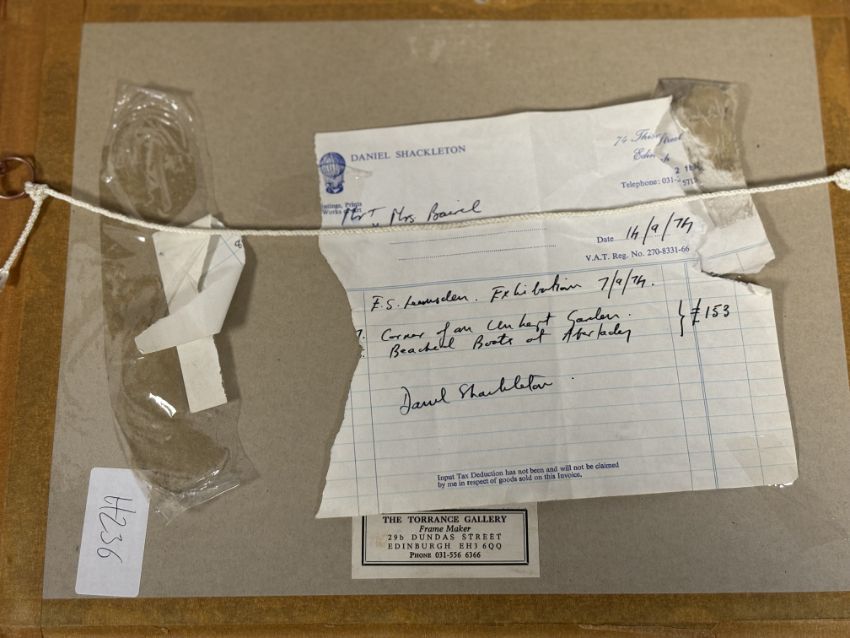 DANIEL SHACKLETON
74 Street
Telephone: 031-
Prints
Works Art
Mr & Mrs Baird
Date 14/9/74
V.A.T. Reg. No. 270-8331-66
E.S. Lumsden. Exhibition 7/9/74.
7. Corner of an Unkept Garden.
Beached Boats at Aberlady } £153
Daniel Shackleton.
Input Tax Deduction has not been and will not be claimed
by me in respect of goods sold on this Invoice.
THE TORRANCE GALLERY
Frame Maker
29b DUNDAS STREET
EDINBURGH EH3 6QQ
PHONE 031-556 6366
4236
8